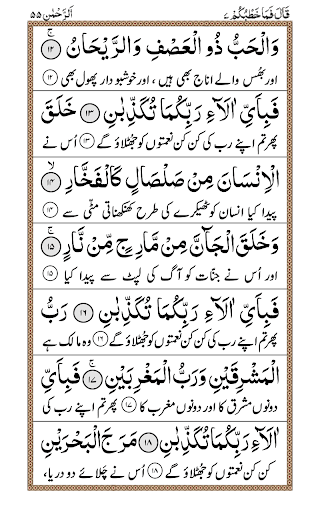 قَالَ فَمَا خَطْبُكُمْ ٢٧ اَلرَّحْمٰن ٥٥
وَالْحَبُّ ذُو الْعَصْفِ وَالرَّيْحَانُ ۚ ﴿١٢﴾
اور بھُس والے اناج بھی ہیں ، اور خوشبو دار پھول بھی ﴿١٢﴾
فَبِاَيِّ اٰلَآءِ رَبِّكُمَا تُكَذِّبٰنِ ﴿١٣﴾ خَلَقَ
پھر تم اپنے رب کی کن کن نعمتوں کو جھٹلاؤ گے ﴿١٣﴾ اُس نے
الْاِنْسَانَ مِنْ صَلْصَالٍ كَالْفَخَّارِ ۙ ﴿١٤﴾
پیدا کیا انسان کو ٹھیکرے کی طرح کھنکھناتی مٹّی سے ﴿١٤﴾
وَخَلَقَ الْجَآنَّ مِنْ مَّارِجٍ مِّنْ نَّارٍ ۚ ﴿١٥﴾
اور اُس نے جنّات کو آگ کی لپٹ سے پیدا کیا ﴿١٥﴾
فَبِاَيِّ اٰلَآءِ رَبِّكُمَا تُكَذِّبٰنِ ﴿١٦﴾ رَبُّ
پھر تم اپنے رب کی کن کن نعمتوں کو جھٹلاؤ گے ﴿١٦﴾ وہ مالک ہے
الْمَشْرِقَيْنِ وَرَبُّ الْمَغْرِبَيْنِ ۚ ﴿١٧﴾ فَبِاَيِّ
دونوں مشرق کا اور دونوں مغرب کا ﴿١٧﴾ پھر تم اپنے رب کی
اٰلَآءِ رَبِّكُمَا تُكَذِّبٰنِ ﴿١٨﴾ مَرَجَ الْبَحْرَيْنِ
کن کن نعمتوں کو جھٹلاؤ گے ﴿١٨﴾ اُس نے چلائے دو دریا،